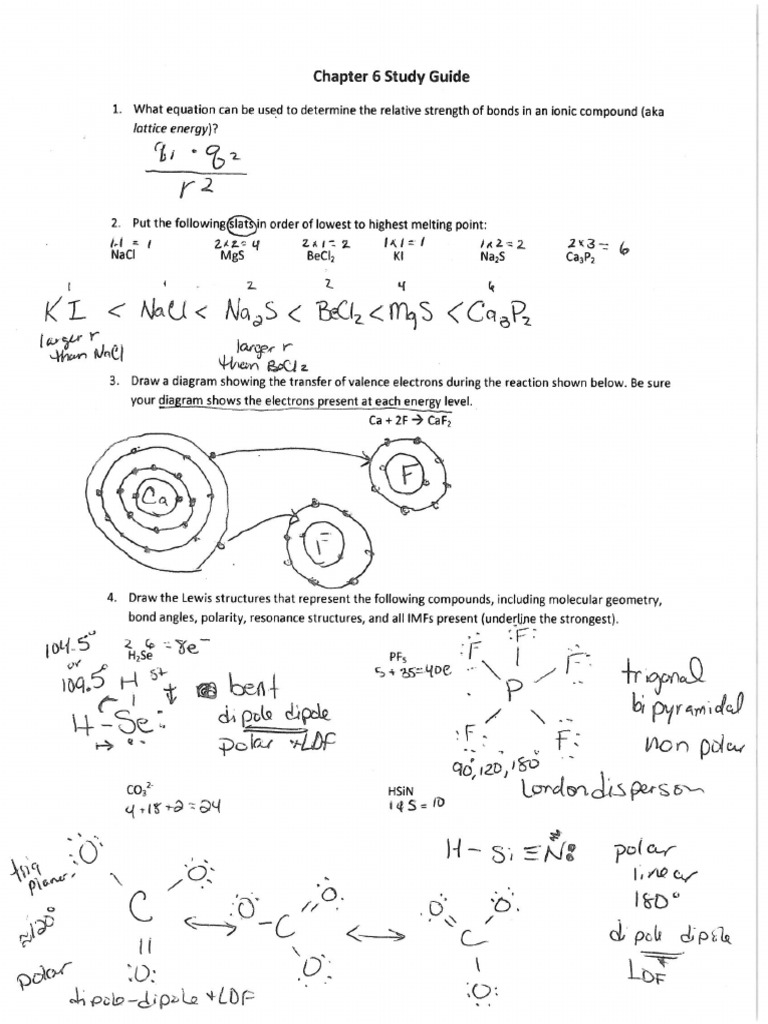 Chapter 6 Study Guide
1. What equation can be used to determine the relative strength of bonds in an ionic compound (aka
lattice energy)?
q1 · q2
r2
2. Put the following slats in order of lowest to highest melting point:
1·1 = 1 2x2=4 2x1=2 1x1=1 1x2=2 2x3=6
NaCl MgS BeCl2 KI Na2S Ca3P2
1 1 2 2 4 6
KI < NaCl < Na2S < BeCl2 < MgS < Ca3P2
larger r
than NaCl
larger r
then BeCl2
3. Draw a diagram showing the transfer of valence electrons during the reaction shown below. Be sure
your diagram shows the electrons present at each energy level.
Ca + 2F → CaF2
Ca
F
F
4. Draw the Lewis structures that represent the following compounds, including molecular geometry,
bond angles, polarity, resonance structures, and all IMFs present (underline the strongest).
104.5°
or
109.5°
2 6 = 8e-
H2Se
H δ+
H-Se:
bent
dipole dipole
polar + LDF
PF5
5+35=40e
:F: :F: F:
P
:F: F:
90°, 120°, 180°
trigonal
bipyramidal
non polar
London disperson
CO3 2-
4+18+2=24
trig
planer
≈120°
polar
:O: O:
C
||
:O:
↔
:O - C = O:
O:
↔
O = C O:
|
:O:
dipole-dipole + LDF
HSiN
1 4 5 = 10
H - Si ≡ N:
polar
linear
180°
dipole dipole
LDF